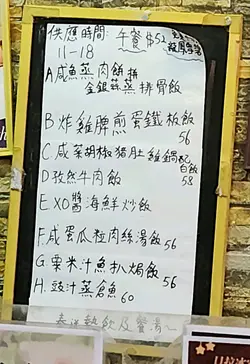 供應時間: 午餐 $52
11-18
A 咸魚蒸肉餅拼
金銀蒜蒸排骨飯
B 炸雞脾煎蛋鐵板飯
56
C. 咸菜胡椒猪肚雞鍋配
白飯
58
D 孜然牛肉飯
E XO醬海鮮炒飯
F. 咸蛋瓜粒肉絲湯飯 56
G 粟米汁魚扒焗飯 56
H. 豉汁蒸倉魚 60
奉送熱飲及餐湯~